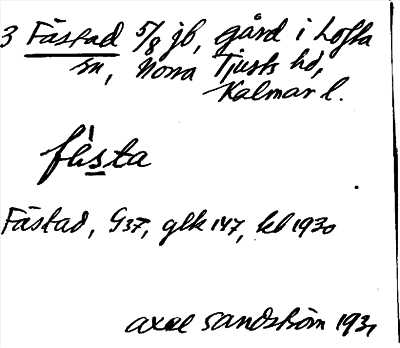 3 Fästad 5/8 jb, gård i Lofta
sn, Norra Tjusts hd,
Kalmar l.
fàsta
Fästad, G37, glk 147, kb 1930
Axel Sandström 1931